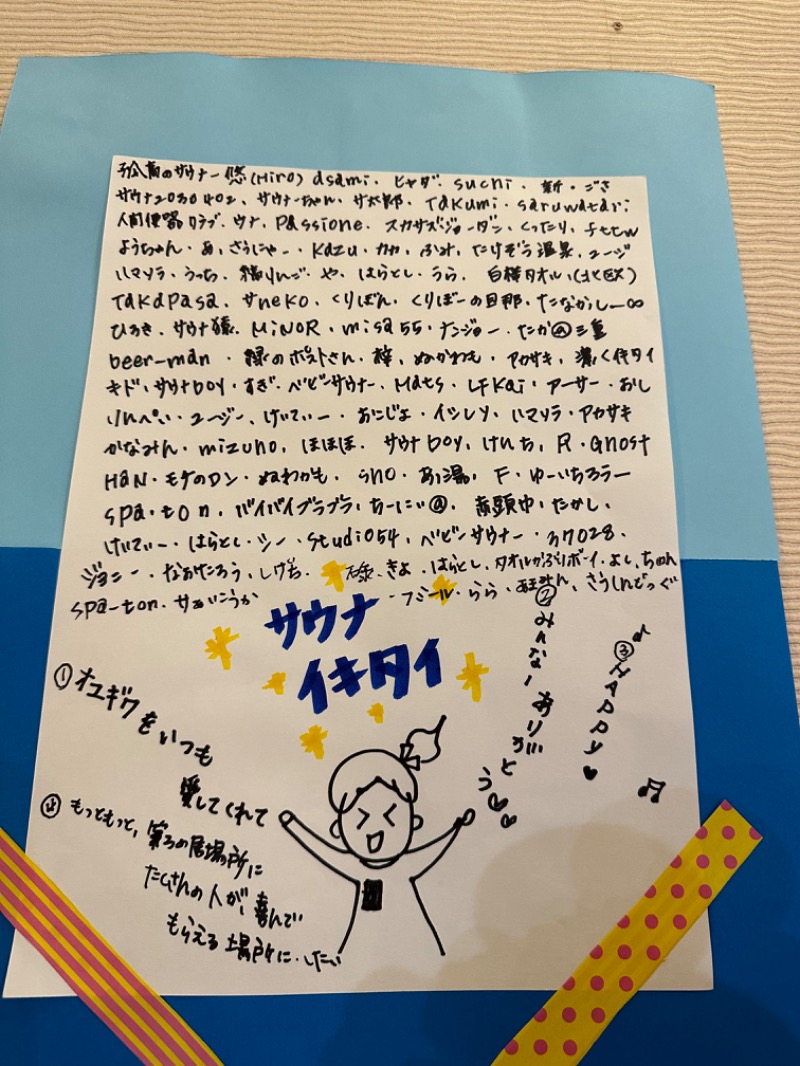 孤高のサウナー悠(Hiro) asami・ヒャダ・suchi・新・ごさ
サウナ2030402、サウナーちゃん・サ太郎、Takumi・saruwatari
人間便器クラブ・ウナ、Passione・スカサズジョーダン・くったり、fttw
ようちゃん・あ、さうにゃー・Kazu・カカ・ふみ・たけぞう温泉、ユージ
ハマソラ・うっち、りんご・や、はらとし・うら、白樺タオル(北EX)
Takapasa、サneko、くりぼん、くりぼーの旦那・たなかしー∞
ひろき、サウナ猿、MiNOR・misa55・ナンジョー・たか@三重
beer-man・緑のポストさん・梓、ぬかわも・アカサキ、湯くイキタイ
キド・サウナboy・すぎ・ベビーサウナー、Mats・LFKai・アーサー・おし
りんぺい・ユージー、けいてぃー・あにじょ・イシレソ、ハマソラ・アカサキ
かなみん・mizuno、ほほほ、サウナboy、けんち、R・Gnost
HaN・モゲのロン・ぬわがも、uno、あ湯、F・ゆーいちろうー
spa・ton、バイバイブラブラ、ちーにぃ@、赤頭巾・たかし、
けいてぃー・はらとし・シー・studio54・ベビンサウナー・37028・
ジョニー・なおたろう、しげち、禄・きよ・はらとし、タオルかぶりボーイ・よし、ちゅん
spa-ton・サあいこうか・フミール・らら・おみん、さうしんどっぐ
サウナ
イキタイ
①オユギワをいつも
愛してくれて
②みんなーありがとう♡♡
③HAPPY♥
④もっともっと、第3の居場所に
たくさんの人が、喜んで
もらえる場所に・したい